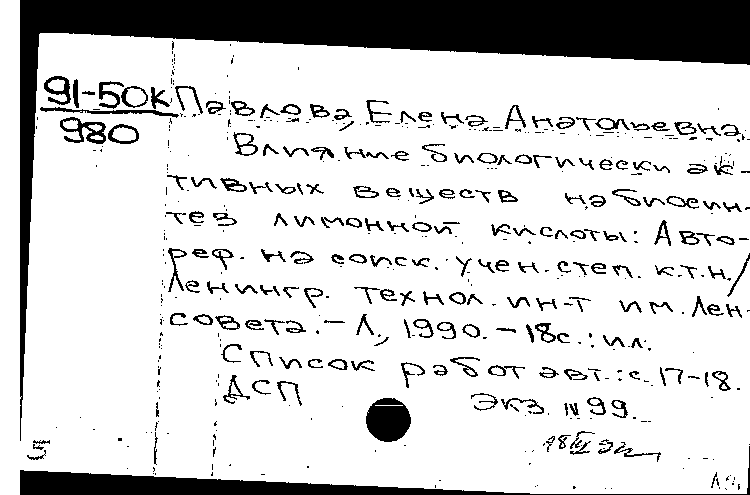 91-50К Павлова, Елена Анатольевна
980
Влияние биологически ак-
тивных веществ на биосин-
тез лимонной кислоты: Авто-
реф. на соиск. учен. степ. к.т.н./
Ленингр. технол. ин-т им. Лен-
совета. - Л., 1990. - 18с.: ил.
Список работ авт.: с. 17-18.
ДСП Экз. N 99.
5